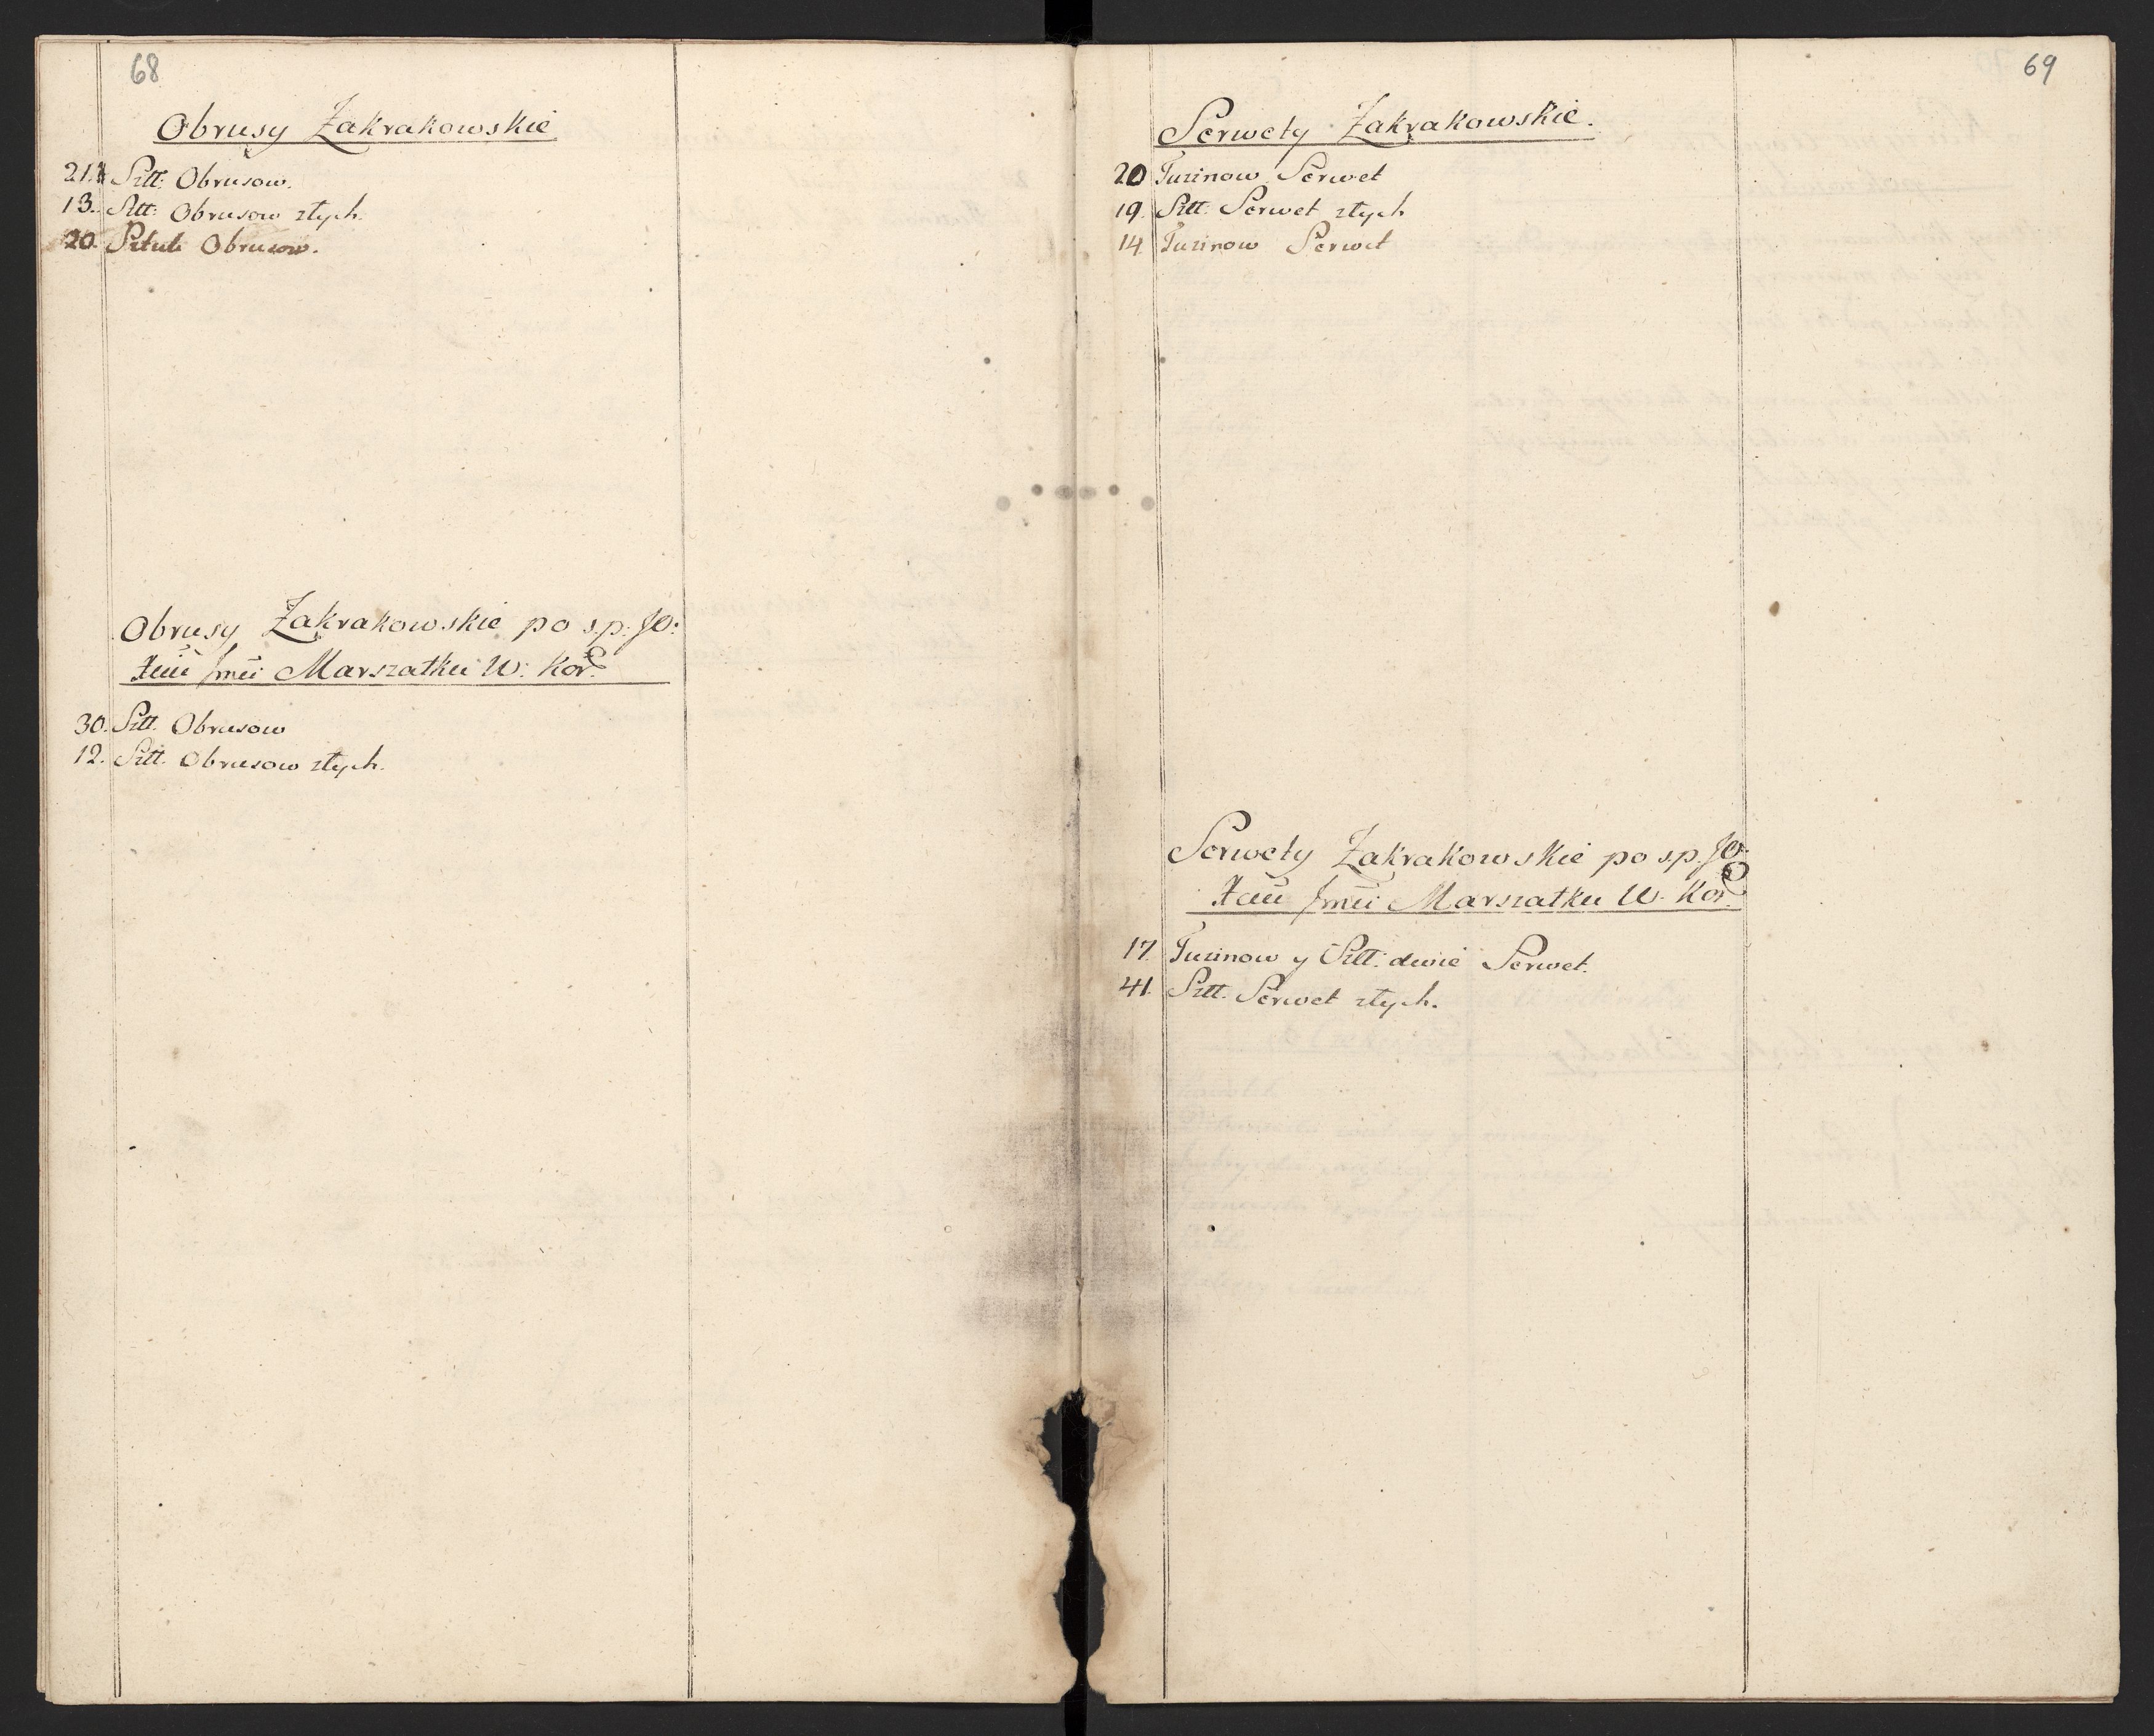 68
Obrusy Zakrakowskie
21. Sztt: Obrusow.
13. Sztt: Obrusow złych.
20. Sztuk Obrusow.
Obrusy Zakrakowskie po s.p. JO:
Xciu Jmci Marszałku W: Kor:
30. Sztt. Obrusow
12. Sztt. Obrusow złych.
69
Serwety Zakrakowskie.
20 Tuzinow Serwet
19. Sztt. Serwet złych
14 Tuzinow Serwet
Serwety Zakrakowskie po s.p. JO:
Xciu Jmci Marszałku W. Kor:
17. Tuzinow y Sztt: dwie Serwet.
41. Sztt. Serwet złych.